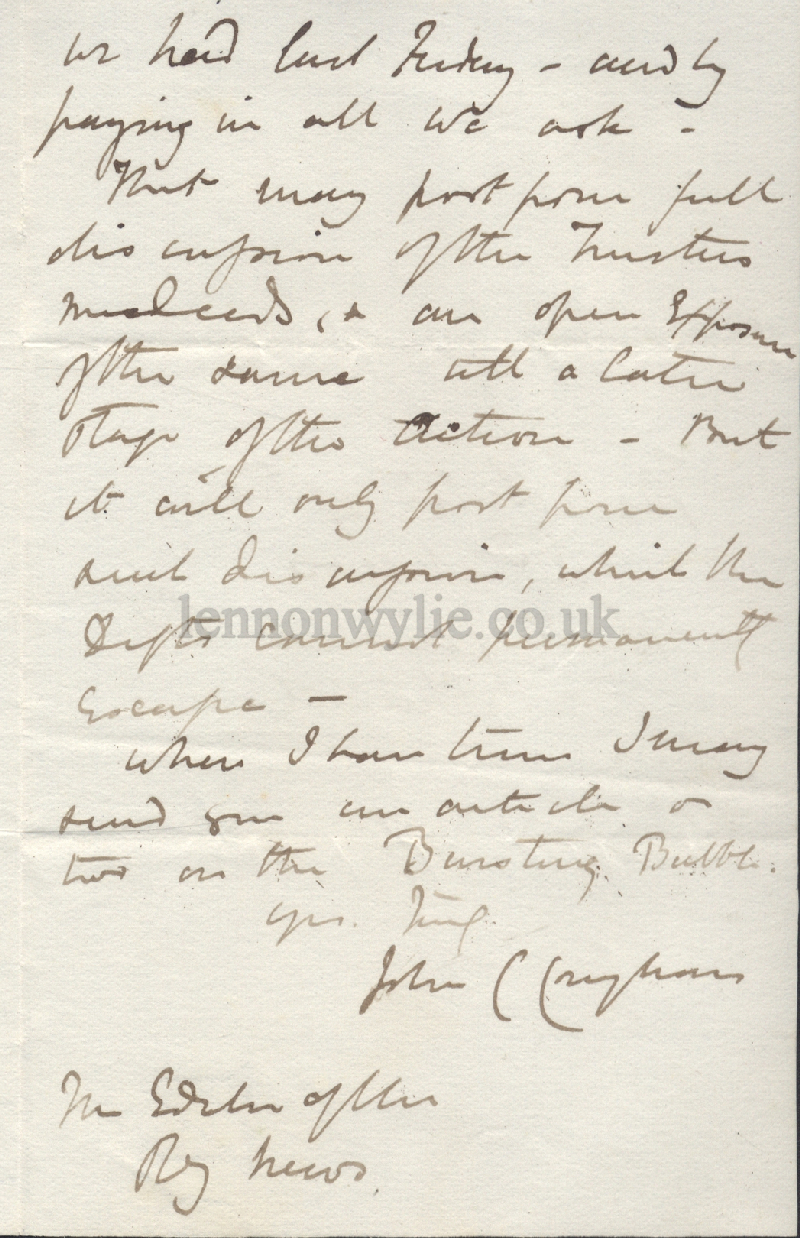 we had last Friday - and by
paying in all we ask -
That may postpone full
discussion of the Trustees
misdeeds, & an open Exposure
of the same till a later
stage of the Action - But
it will only postpone
such discussion, which the
Defts cannot permanently
escape -
When I have time I may
send you an article or
two on the Bursting Bubble.
yrs. truly
John C C
The Editor of the
News.
lennonwylie.co.uk